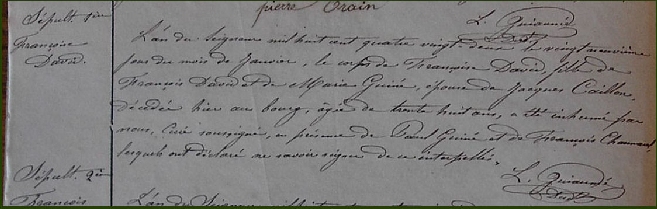 pierre Orain
Sépult. 1ère
Françoise
David.
L. Guiaumé
L'an du Seigneur mil huit cent quatre vingt deux le vingt neuvième
jour du mois de Janvier, le corps de Françoise David, fille de
François David et de Marie Guiné, épouse de Jacques Caillon,
décédée hier au bourg, âgée de trente huit ans, a été inhumé par
nous, Curé soussigné, en présence de Paul Guiné et de François
lesquels ont déclaré ne savoir signer de ce interpellés.
L. Guiaumé
Sépult. 2e
François
L'an du Seigneur mil huit cent quatre